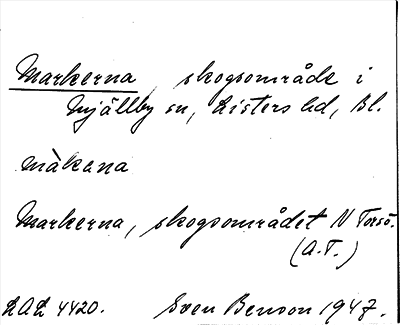 Markerna, skogsområde i
Mjällby sn, Listers hd, Bl.
màkana
Markerna, skogsområdet N Torsö.
(A.T.)
LAL 4420. Sven Benson 1947.